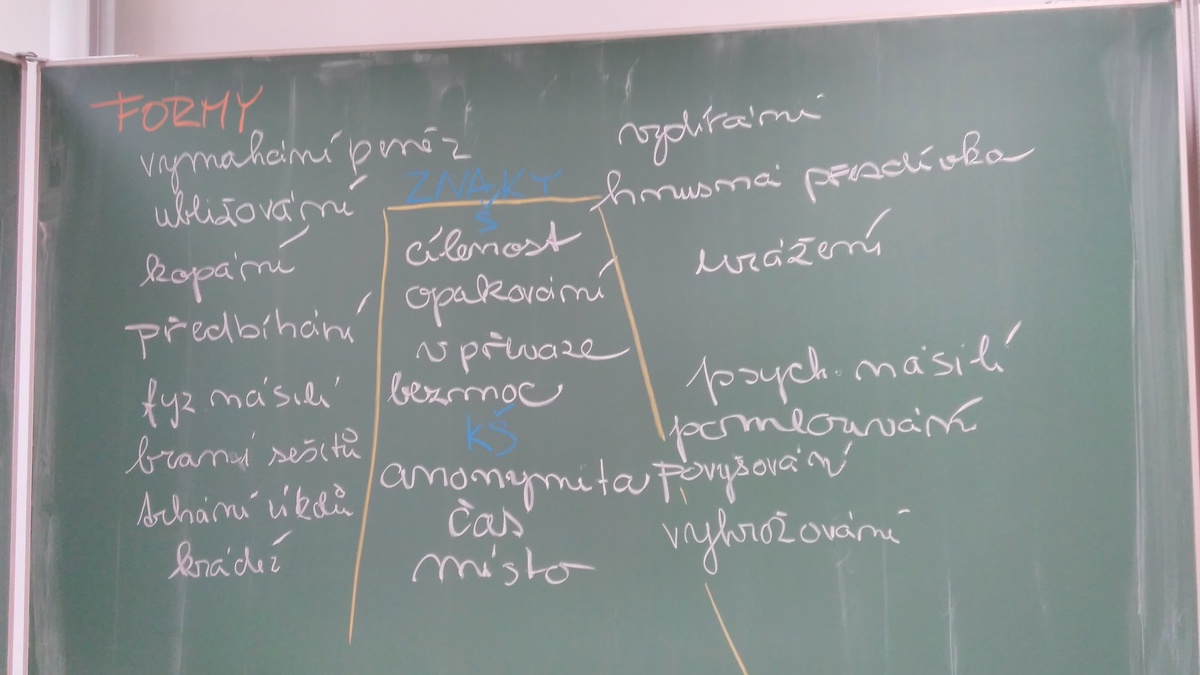 FORMY
vymáhání peněz
ubližování
kopání
předbíhání
fyz. násilí
braní sešitů
krádež
ZNAKY
Š
cílenost
opakování
v převaze
bezmoc
KŠ
anonymita
čas
místo
hnusná přezdívka
urážení
psych. násilí
pomlouvání
povyšování
vyhrožování